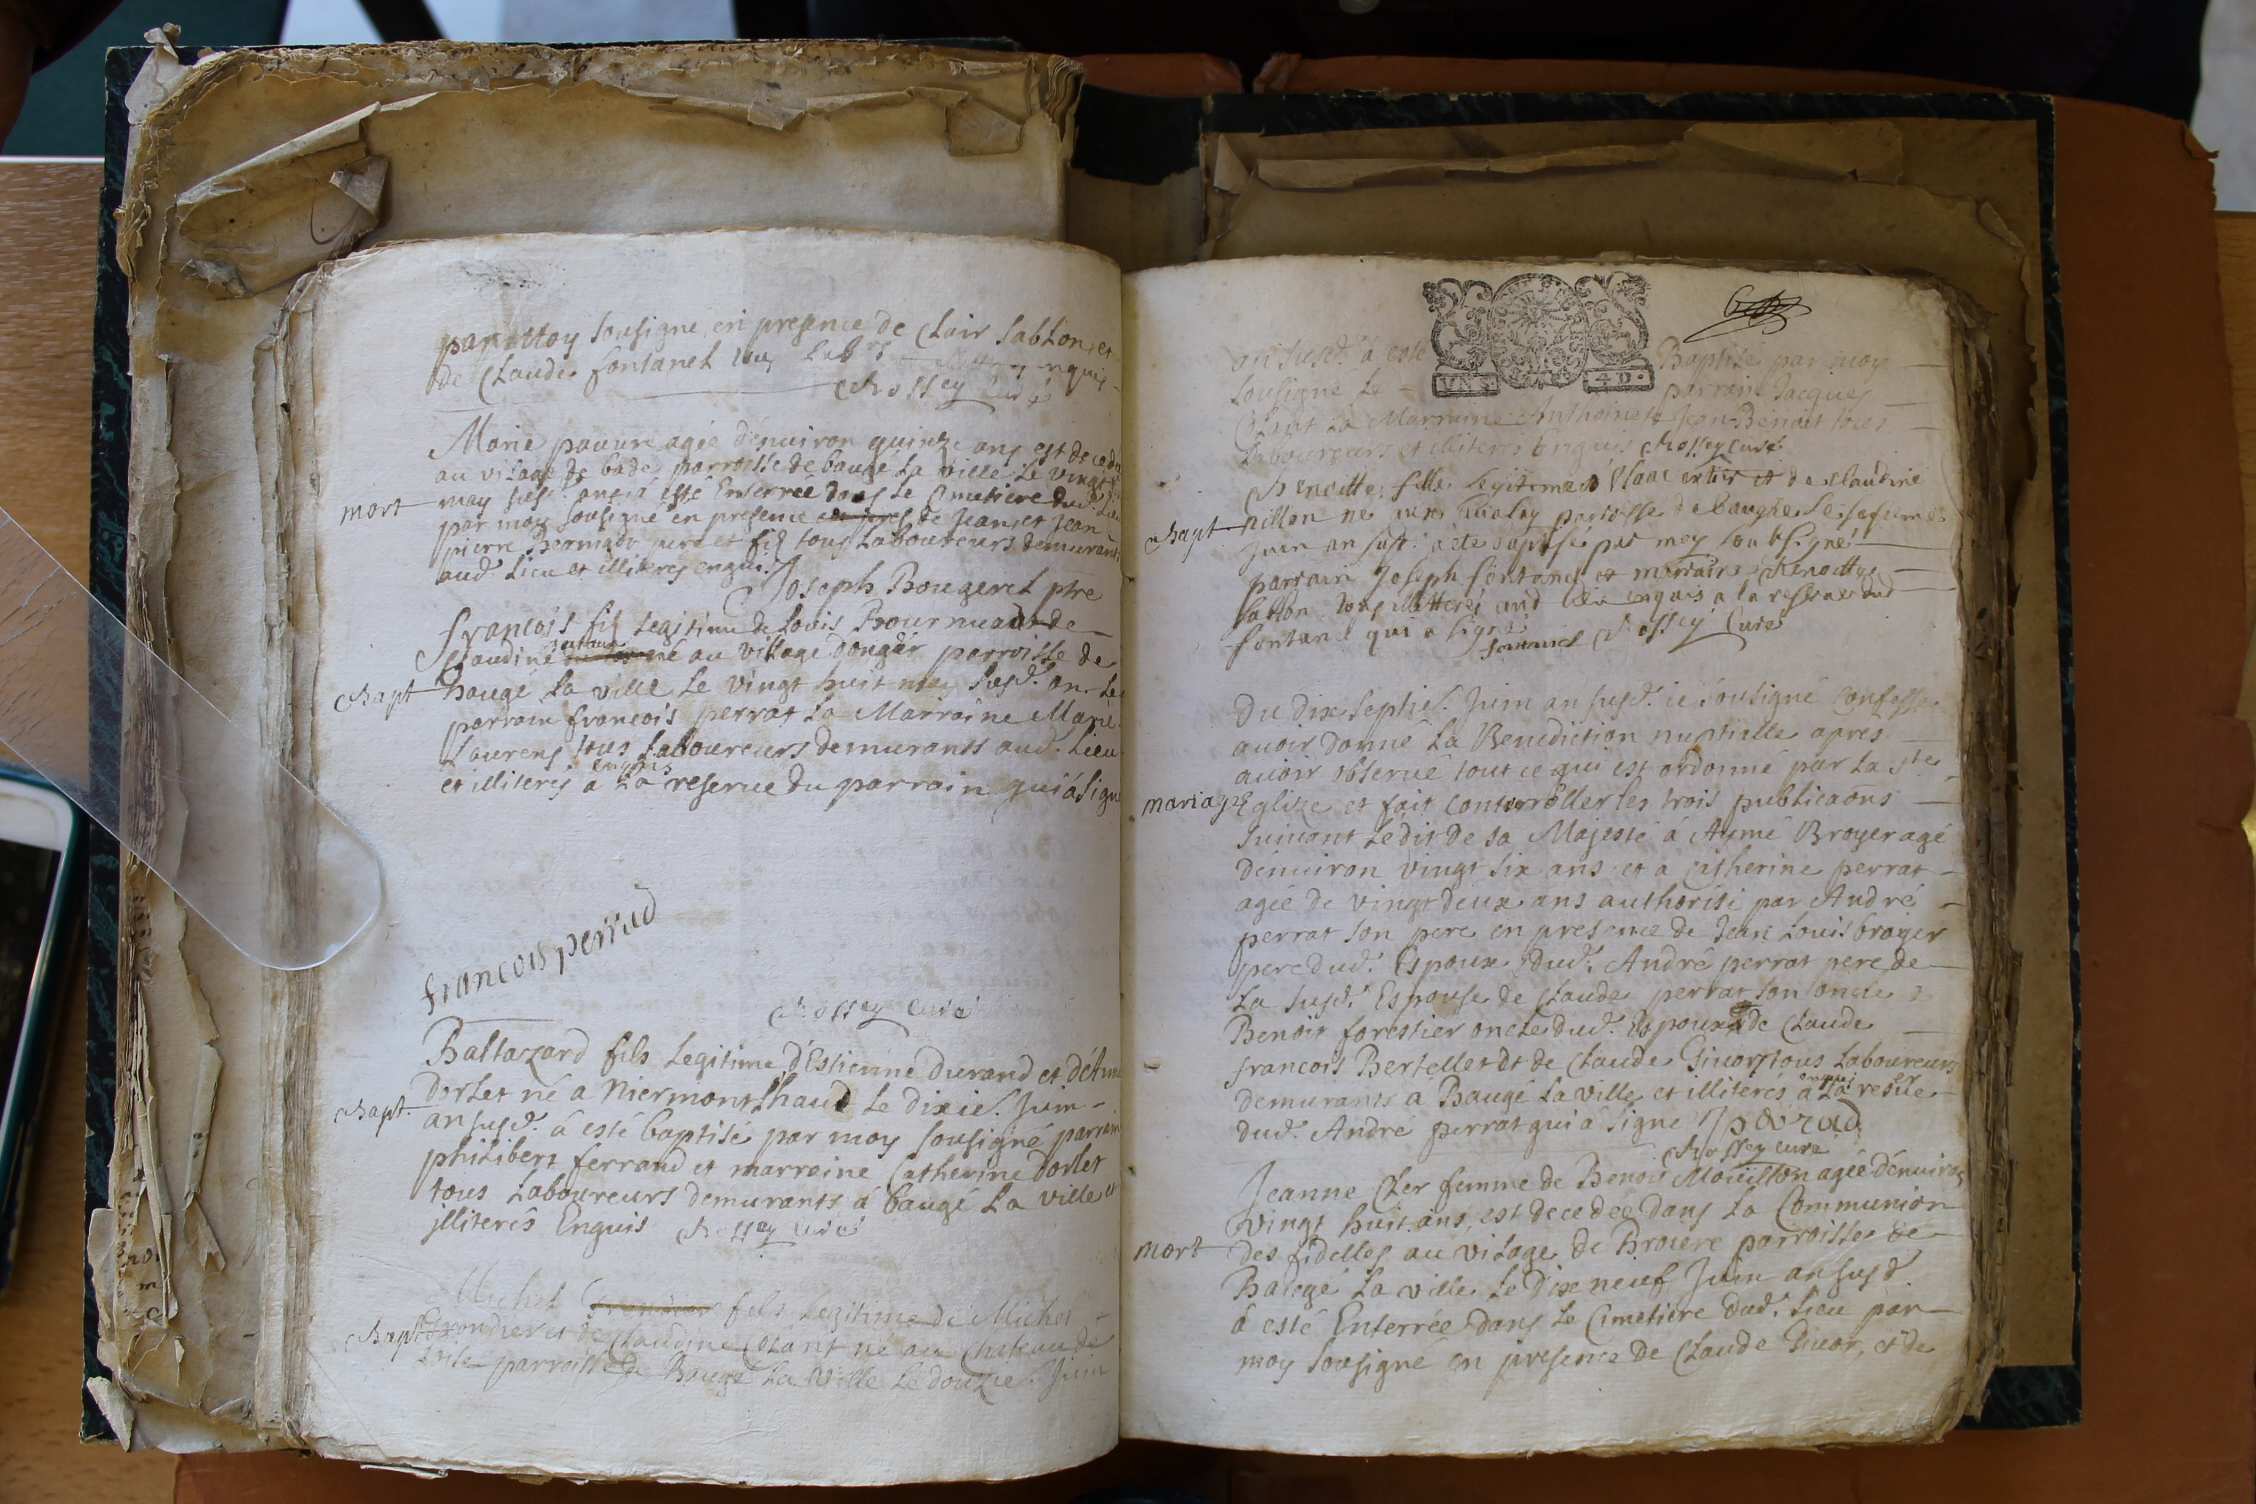 par Moy sousigné en presence de Clair Sablon, et
de Claude fontanel enquis
Rossey Curé
Marie pauvre agée denviron quinze ans est decedé
au vilage de bade parroisse de baugé La ville Le vingt
mort
may susd. an a esté Enterrée dans Le Cimetiere dud. Lieu
par moy sousigné en presence de Jean, et Jean
pierre pere et fils tous Laboureurs demurants
aud. Lieu et illiteres enquis
Joseph Bougeret ptre
françois fils Legitime de Louis Bourneau de
Claudine né au village dongér parroisse de
Bapt
baugé La ville Le vingt huit may susd. an Le
parrain françois perrat La Marraine Marie
Laurens tous Laboureurs demurants aud. Lieu
et illiteres enquis a La reserve du parrain qui á signé
francois perrud
Rossey Curé
Baltazard fils Legitime d'Estienne durand et d'
dorlet né a Niermont Le dixie. Juin
Bapt.
an susd. á esté baptisé par moy sousigné parrain
philibert ferrand et marraine Catherine dorlet
tous Laboureurs demurants á baugé La ville et
jlliterés Enquis Rossey Curé
Michel fils Legitime de Michel
Bapt
et de Claudine Colant né au Chateau de
parroisse de Baugé La ville Le douzie. Juin
UN S. 4 D.
an susd. á esté Baptisé par moy
sousigné Le parrain Jacques
La Marraine Anthoinete Jean-Benoit tous
Laboureurs et illiterés Enquis Rossey Curé
Benoitte fille Legitime d' et de Claudine
Bapt
parroisse de baugé Le
Juin an susd. a été baptisé par moy soubsigné
parrain Joseph fontanel et marraine Benoitte
sablon tous illitterés aud Lieu enquis a la reserve dud
fontanel qui a signé
fontanel Rossey Curé
Du dix septie. Juin an susd. ie sousigné Confesse
avoir donné La Benediction nuptielle apres
avoir observé tout ce qui est ordonné par La ste
mariage
Eglize et fait controller les trois publicaons
suivant Ledit de sa Majesté á Aymé Broyer agé
denviron vingt six ans et a Catherine perrat
agée de vingt deux ans authorisé par André
perrat son pere en presence de Jean Louis broyer
pere dud. Espoux dud. André perrat pere de
La susd. Espouse de Claude perrat son oncle
Benoit forestier oncle dud. Espoux de Claude
francois Bertellet et de Claude Givort tous Laboureurs
demurants á Baugé La ville et illiterés enquis a La reserve
dud. André perrat qui á signé
Rossey Curé
Jeanne femme de Benoit Mouillon agée denviron
vingt huit ans est decedée dans La Communion
mort
des fidelles au vilage de Broiere parroisse de
Baugé La ville Le dix neuf Juin an susd.
á esté Enterrée dans Le Cimetiere dud. Lieu par
moy sousigné en presence de Claude Givor, et de